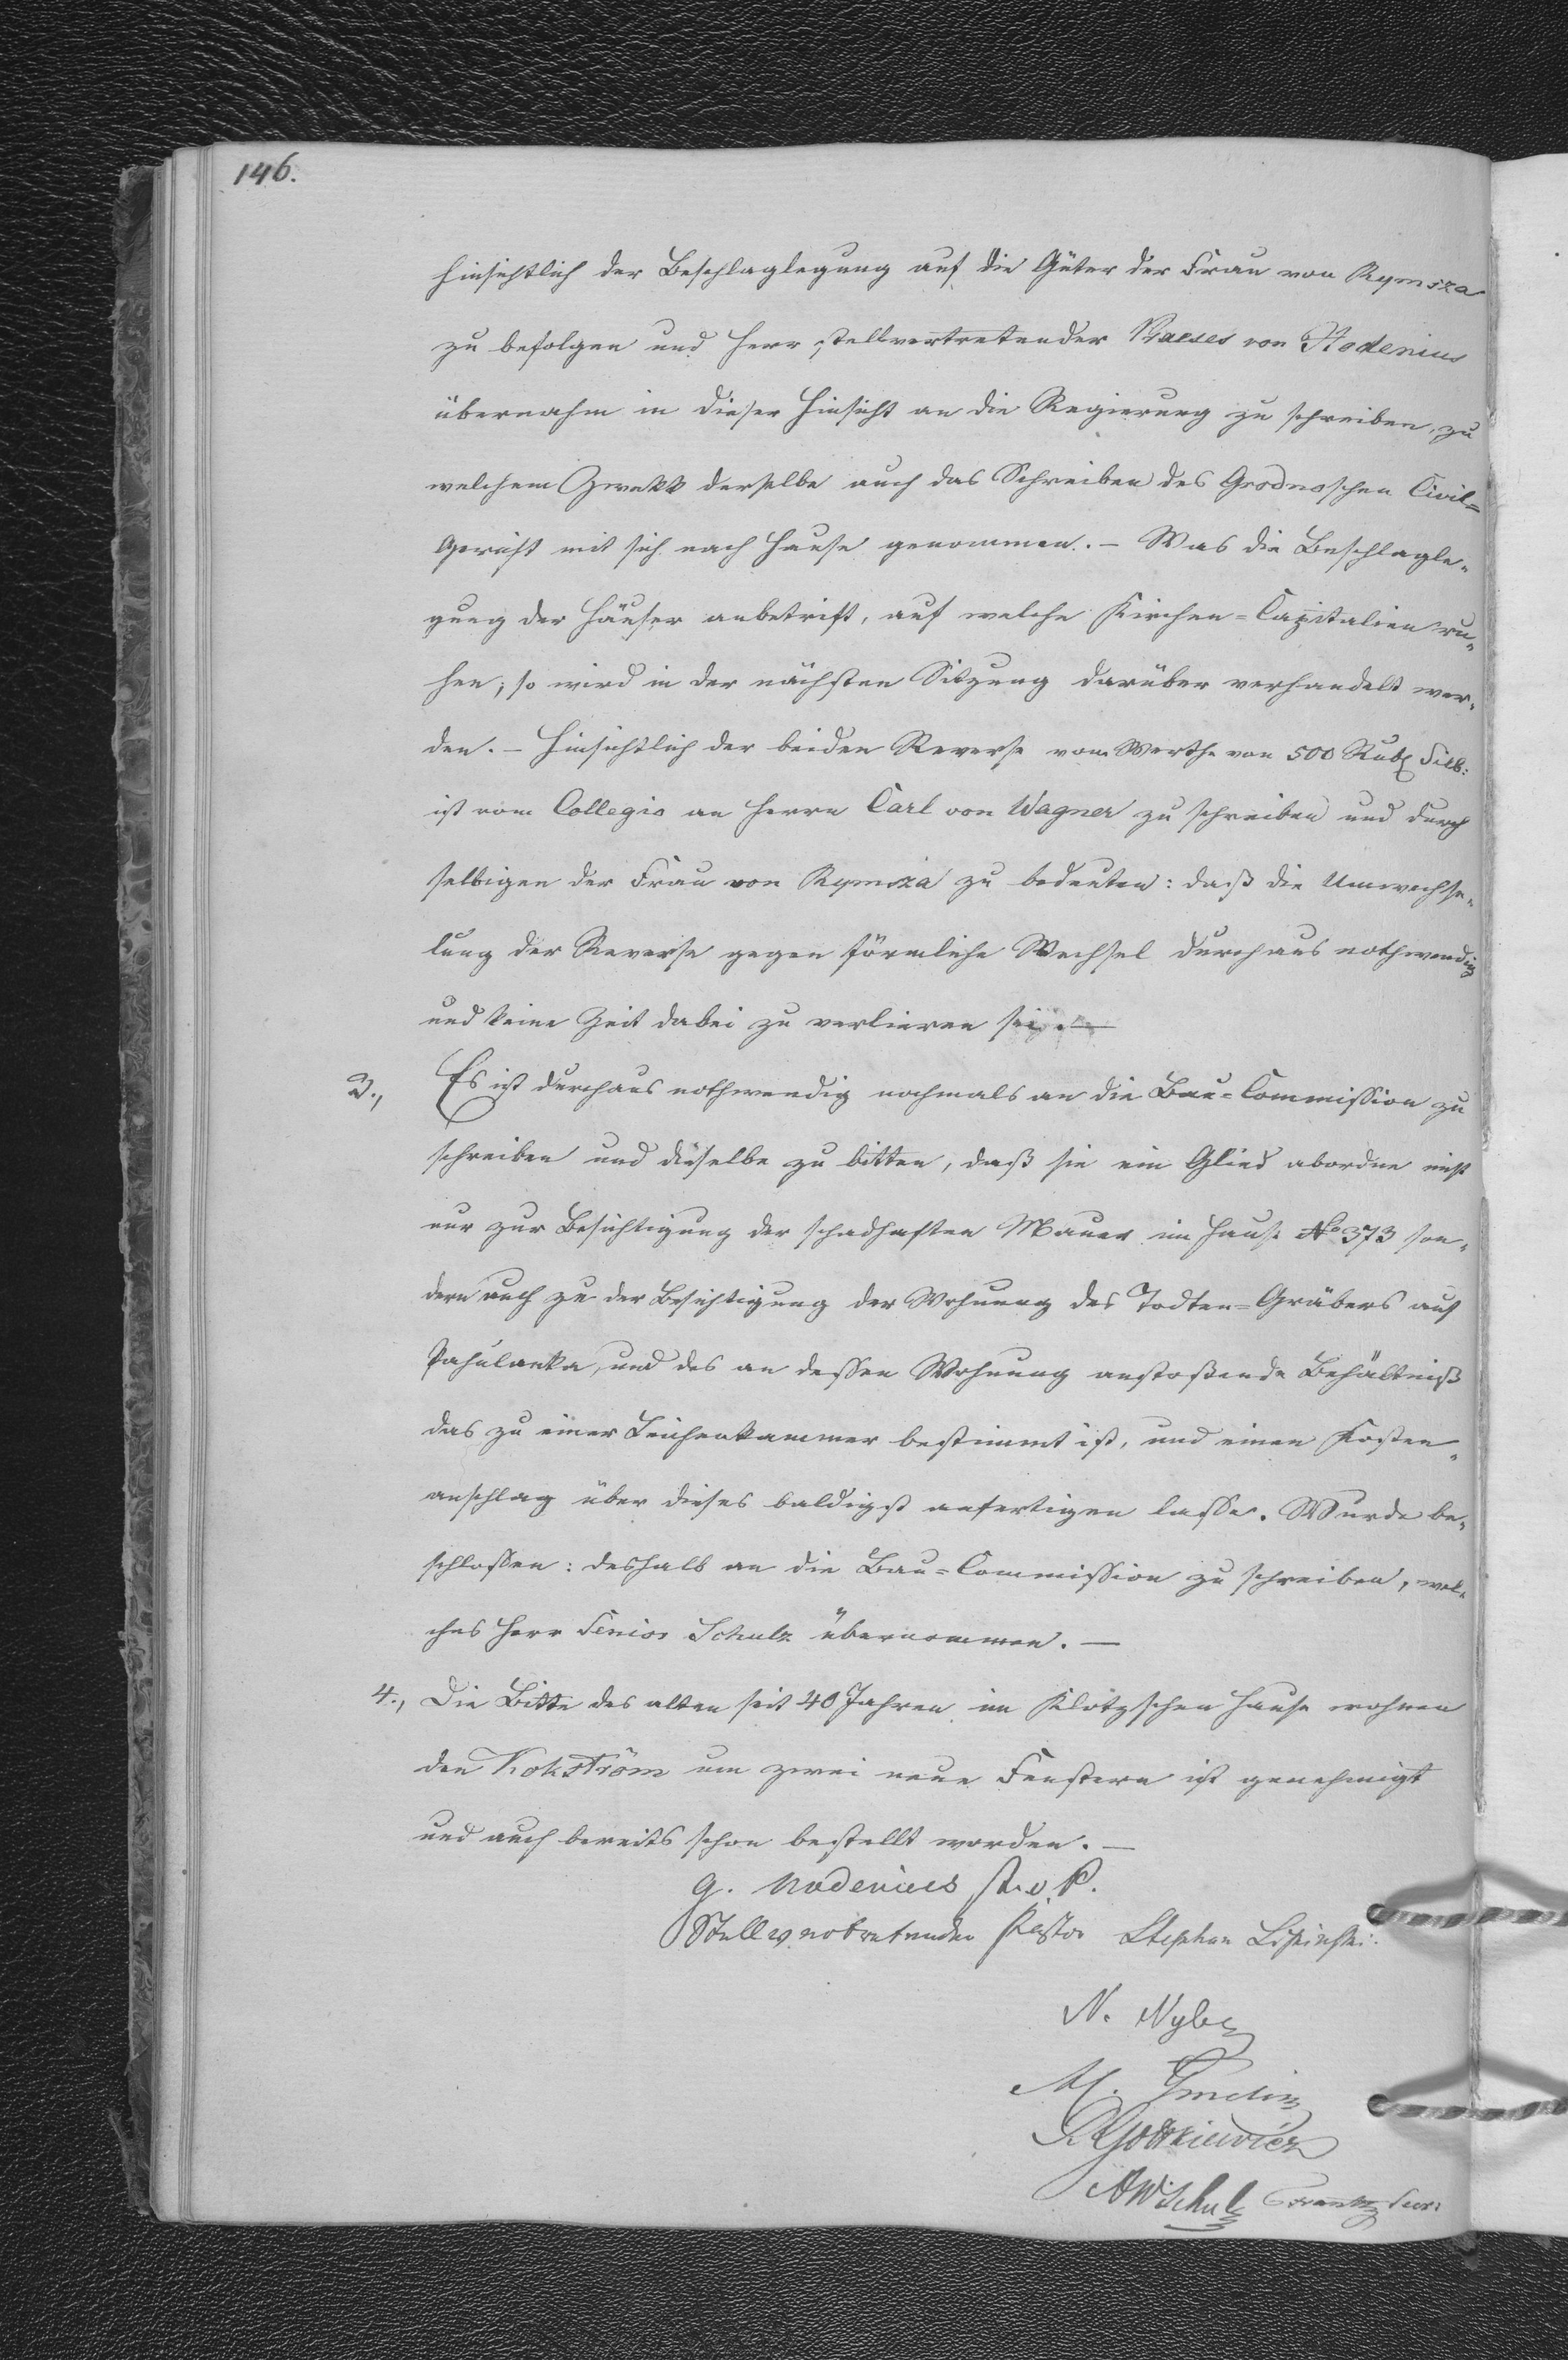 146.
hinsichtlich der Beschlaglegung auf die Güter der Frau von Rymsza
zu befolgen und Herr stellvertretender Praeses von Nodenius
übernahm in dieser Hinsicht an die Regierung zu schreiben, zu
welchem Zwekk derselbe auch das Schreiben des Grodnoschen Civil=
Gericht mit sich nach Hause genommen. – Was die Beschlagle-
gung der Häuser anbetrift, auf welche Kirchen=Capitalien ru-
hen; so wird in der nächsten Sitzung darüber verhandelt wer-
den. – Hinsichtlich der beiden Reverse vom Werthe von 500 Rub Silb:
ist vom Collegio an Herrn Carl von Wagner zu schreiben und durch
selbigen der Frau von Rymsza zu bedeuten: daß die Umwechse-
lung der Reverse gegen förmliche Wechsel durchaus nothwendig
und keine Zeit dabei zu verlieren sei. —
3., Es ist durchaus nothwendig nochmals an die Bau=Commission zu
schreiben und dieselbe zu bitten, daß sie ein Glied abordne nicht
nur zur Besichtigung der schadhaften Mauer im Hause No 373 son-
dern auch zu der Besichtigung der Wohnung des Todten=Gräbers auf
Pohulanka, und des an dessen Wohnung anstoßende Behältniß
das zu einer Leichenkammer bestimmt ist, und einen Kosten-
anschlag über dieses baldigst anfertigen lasse. Wurde be-
schlossen: deshalb an die Bau=Commission zu schreiben, wel-
ches Herr Senior Schulz übernommen. —
4., Die Bitte des alten seit 40 Jahren im Klotzschen Hause wohnen
den Kokström um zwei neue Fenstern ist genehmigt
und auch bereits schon bestellt worden. —
G. Nodenius st. v. P.
Stellvertretender Pastor Stephan Lipinski.
N. Nyberg
M. Gmelin
Gotkiewicz
AWSchulz Secr: